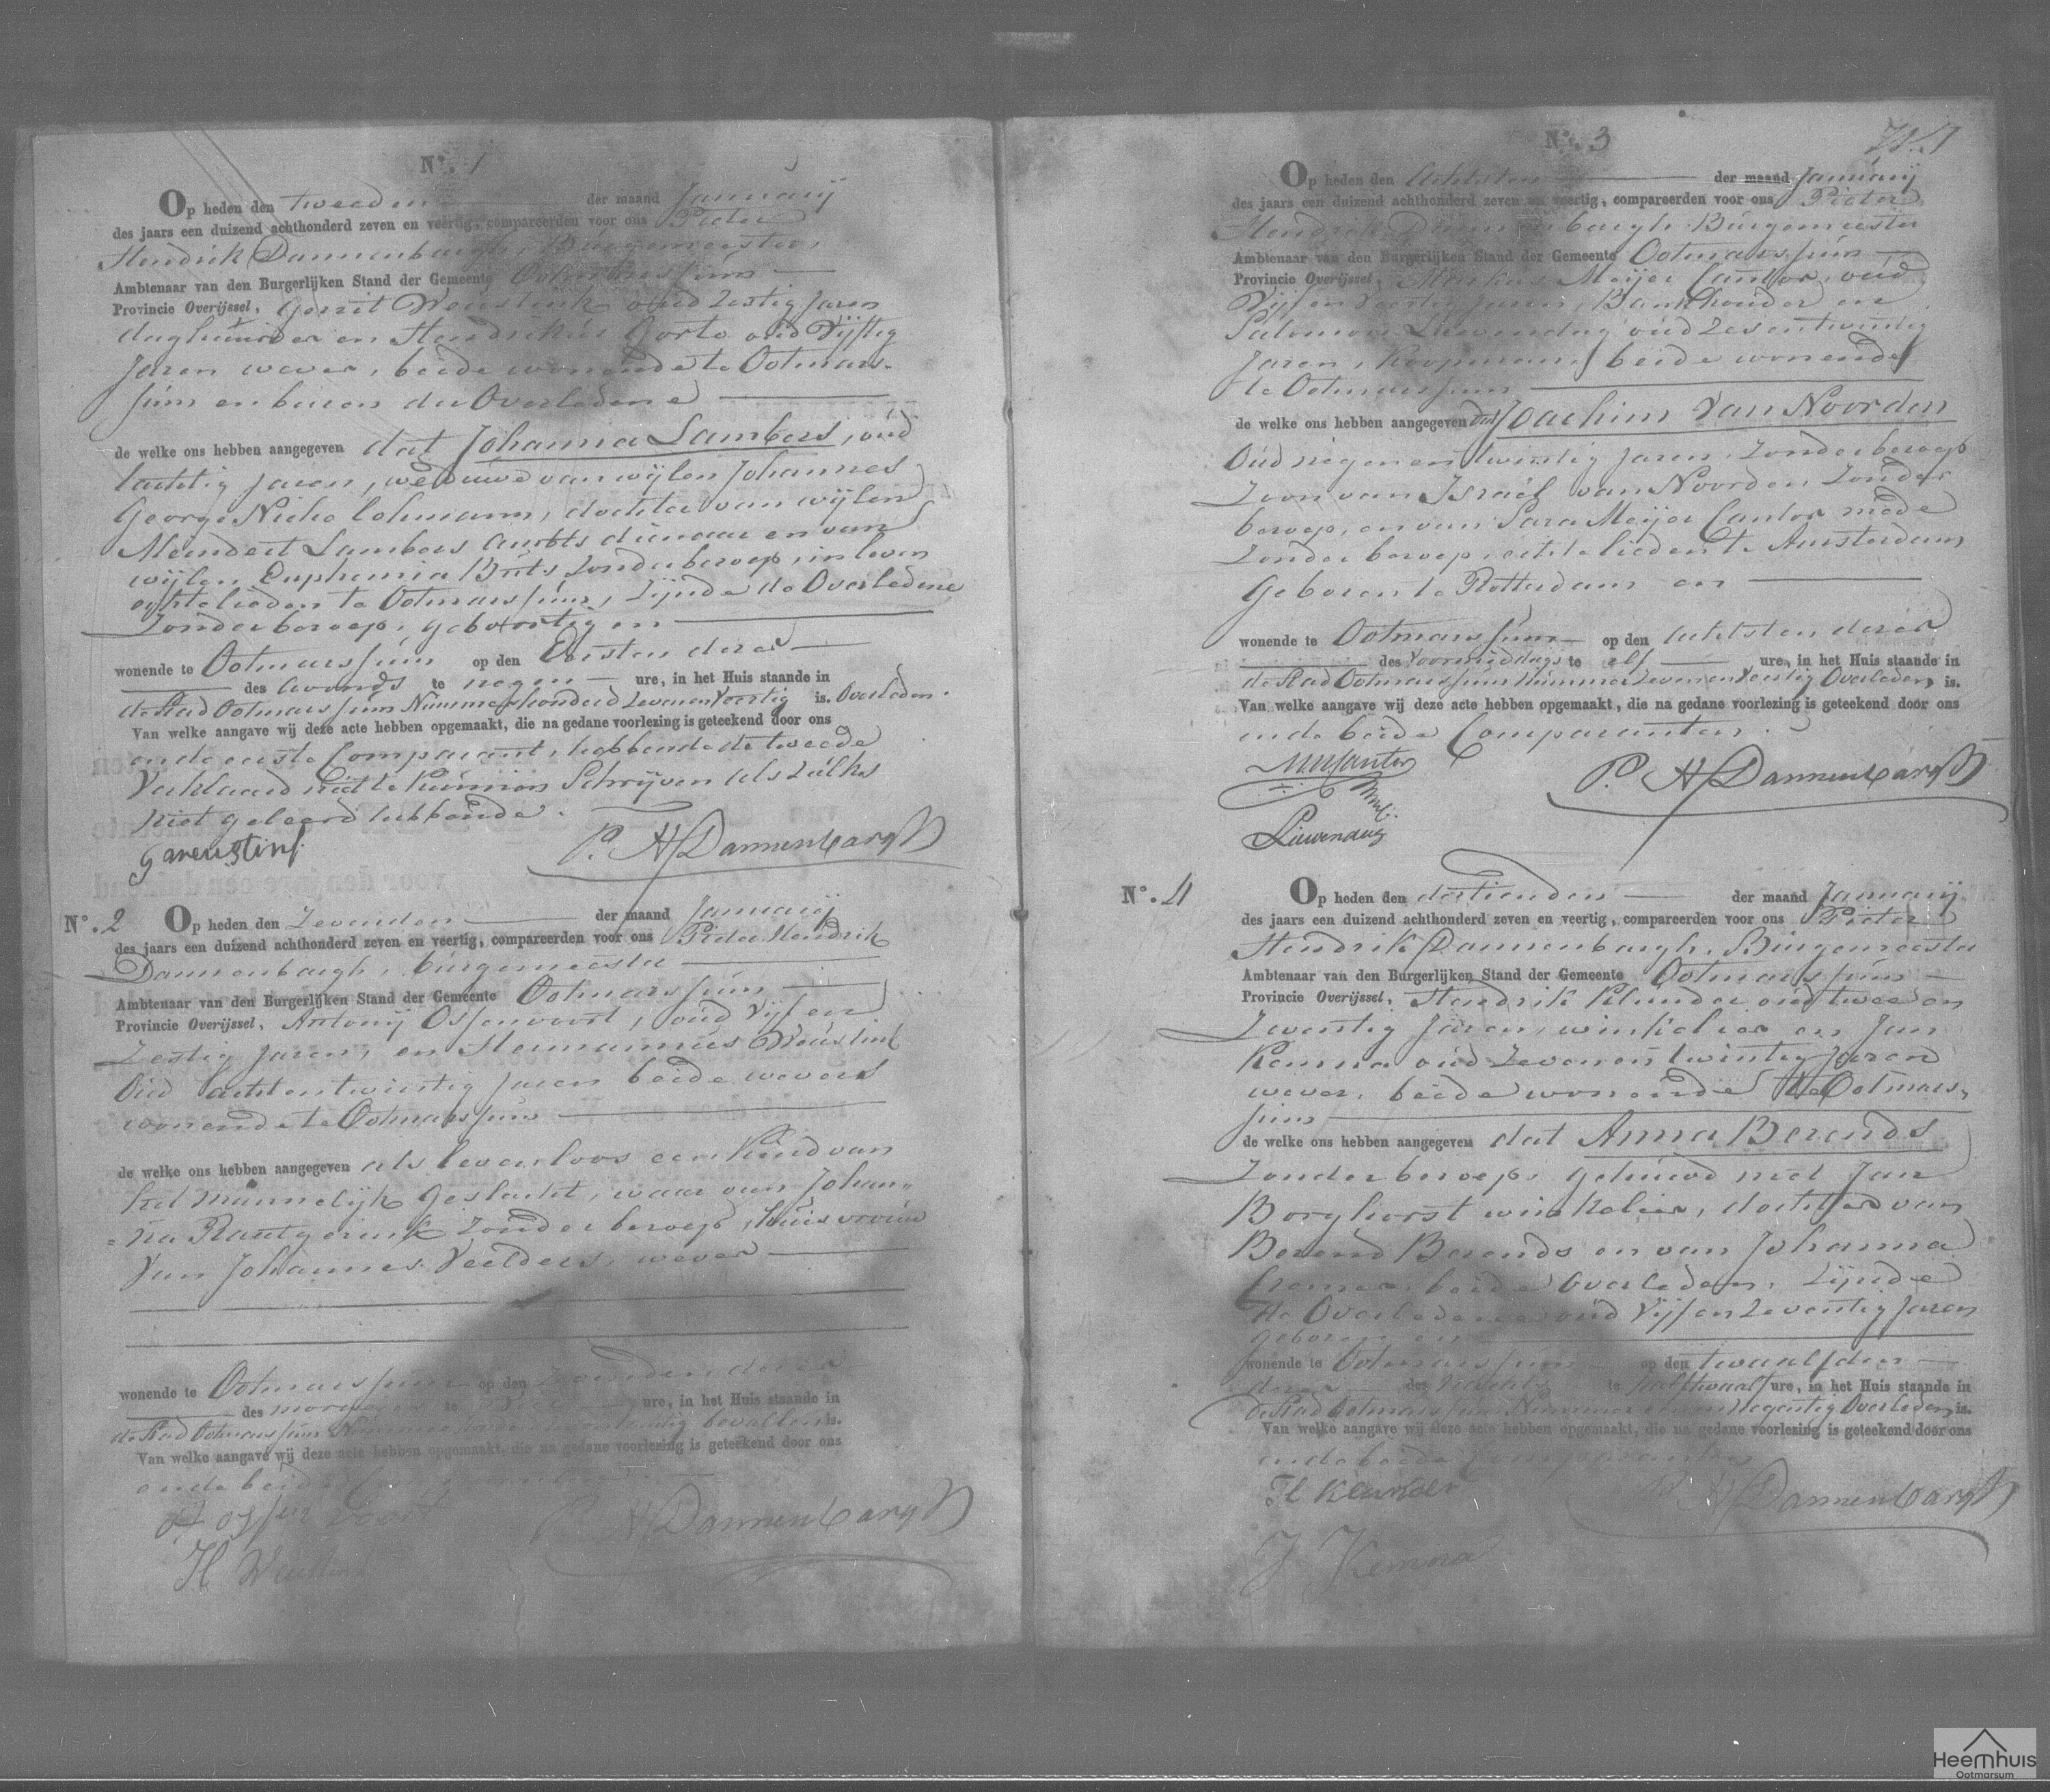 No. 1
Op heden den tweeden der maand Januarij
des jaars een duizend achthonderd zeven en veertig, compareerden voor ons Pieter
Hendrik Dannenbargh, Burgemeester,
Ambtenaar van den Burgerlijken Stand der Gemeente Ootmarssum
Provincie Overijssel, Gerrit Weustink oud Zestig Jaren
daghuurder en Hendrikus Gorte oud Vijftig
Jaren wever, beide wonende te Ootmars-
sum en buren der Overledene
de welke ons hebben aangegeven dat Johanna Lambers, oud
tachtig Jaren, weduwe van wijlen Johannes
George Niehe Lohmann, dochter van wijlen
Meindert Lambers ambts dienaar en van
wijlen Euphemia Zonder beroep, in leven
echtelieden te Ootmarssum, Zijnde de Overledene
Zonder beroep, geboortig en
wonende te Ootmarssum op den Eersten dezer
des avonds te negen ure, in het Huis staande in
de Stad Ootmarssum Nummer honderd Zeven en Veertig is. Overleden.
Van welke aangave wij deze acte hebben opgemaakt, die na gedane voorlezing is geteekend door ons
en de eerste Comparant, hebbende de tweede
Verklaard niet te kunnen Schrijven als zulks
niet geleerd hebbende.
G Weustink P. H Dannenbargh
No. 2 Op heden den Zevenden der maand Januarij
des jaars een duizend achthonderd zeven en veertig, compareerden voor ons Pieter Hendrik
Dannenbargh, burgemeester
Ambtenaar van den Burgerlijken Stand der Gemeente Ootmarssum
Provincie Overijssel, Antonij Ossenvoort, oud Vijf en
Zestig Jaren, en Hermannus Weustink
Oud acht en twintig Jaren beide wevers
wonende te Ootmarssum
de welke ons hebben aangegeven als levenloos een Kind van
het mannelijk geslacht, waar van Johan-
na Zonder beroep, huisvrouw
Van Johannes Veelders, wever
wonende te Ootmarssum op den Zevenden dezer
des morgens te ure, in het Huis staande in
de Stad Ootmarssum Nummer bevallen is.
Van welke aangave wij deze acte hebben opgemaakt, die na gedane voorlezing is geteekend door ons
en de beide Comparanten
Ossenvoort P. H Dannenbargh
H Weustink
No. 3
Op heden den Achtsten der maand Januarij
des jaars een duizend achthonderd zeven en veertig, compareerden voor ons Pieter
Hendrik Dannenbargh Burgemeester
Ambtenaar van den Burgerlijken Stand der Gemeente Ootmarssum
Provincie Overijssel, Markus Meijer Cantor, oud
Vijf en Veertig Jaren, Bankhouder en
Salomon Lievendag oud Zes en twintig
Jaren, Koopman, beide wonende
te Ootmarssum
de welke ons hebben aangegeven dat Joachim Van Noorden
Oud negen en twintig Jaren, Zonder beroep
Zoon van Israël van Noorden Zonder
beroep, en van Sara Meijer Cantor mede
Zonder beroep, echtelieden te Amsterdam
Geboren te Rotterdam en
wonende te Ootmarssum op den achtsten dezer
des Voormiddags te elf ure, in het Huis staande in
de Stad Ootmarssum nummer Zeven en Veertig Overleden is.
Van welke aangave wij deze acte hebben opgemaakt, die na gedane voorlezing is geteekend door ons
en de beide Comparanten.
MMCantor P. H Dannenbargh
Lievendag
No. 4 Op heden den dertienden der maand Januarij
des jaars een duizend achthonderd zeven en veertig, compareerden voor ons Pieter
Hendrik Dannenbargh, Burgemeester
Ambtenaar van den Burgerlijken Stand der Gemeente Ootmarssum
Provincie Overijssel, Hendrik Klunder oud twee en
Zeventig Jaren, winkelier en Jan
Kemna oud Zeven en twintig Jaren
wever, beide wonende te Ootmars-
sum
de welke ons hebben aangegeven dat Anna Berends
Zonder beroep, gehuwd met Jan
Borghorst winkelier, dochter van
Berend Berends en van Johanna
Cramer, beide Overleden, Zijnde
de Overledene oud Vijf en Zeventig Jaren
geboren en
wonende te Ootmarssum op den twaalfden
dezer des nachts te half twaalf ure, in het Huis staande in
de Stad Ootmarssum Nummer negentig Overleden is.
Van welke aangave wij deze acte hebben opgemaakt, die na gedane voorlezing is geteekend door ons
en de beide Comparanten
H Klunder P. H Dannenbargh
J Kemna
Heemhuis
Ootmarsum